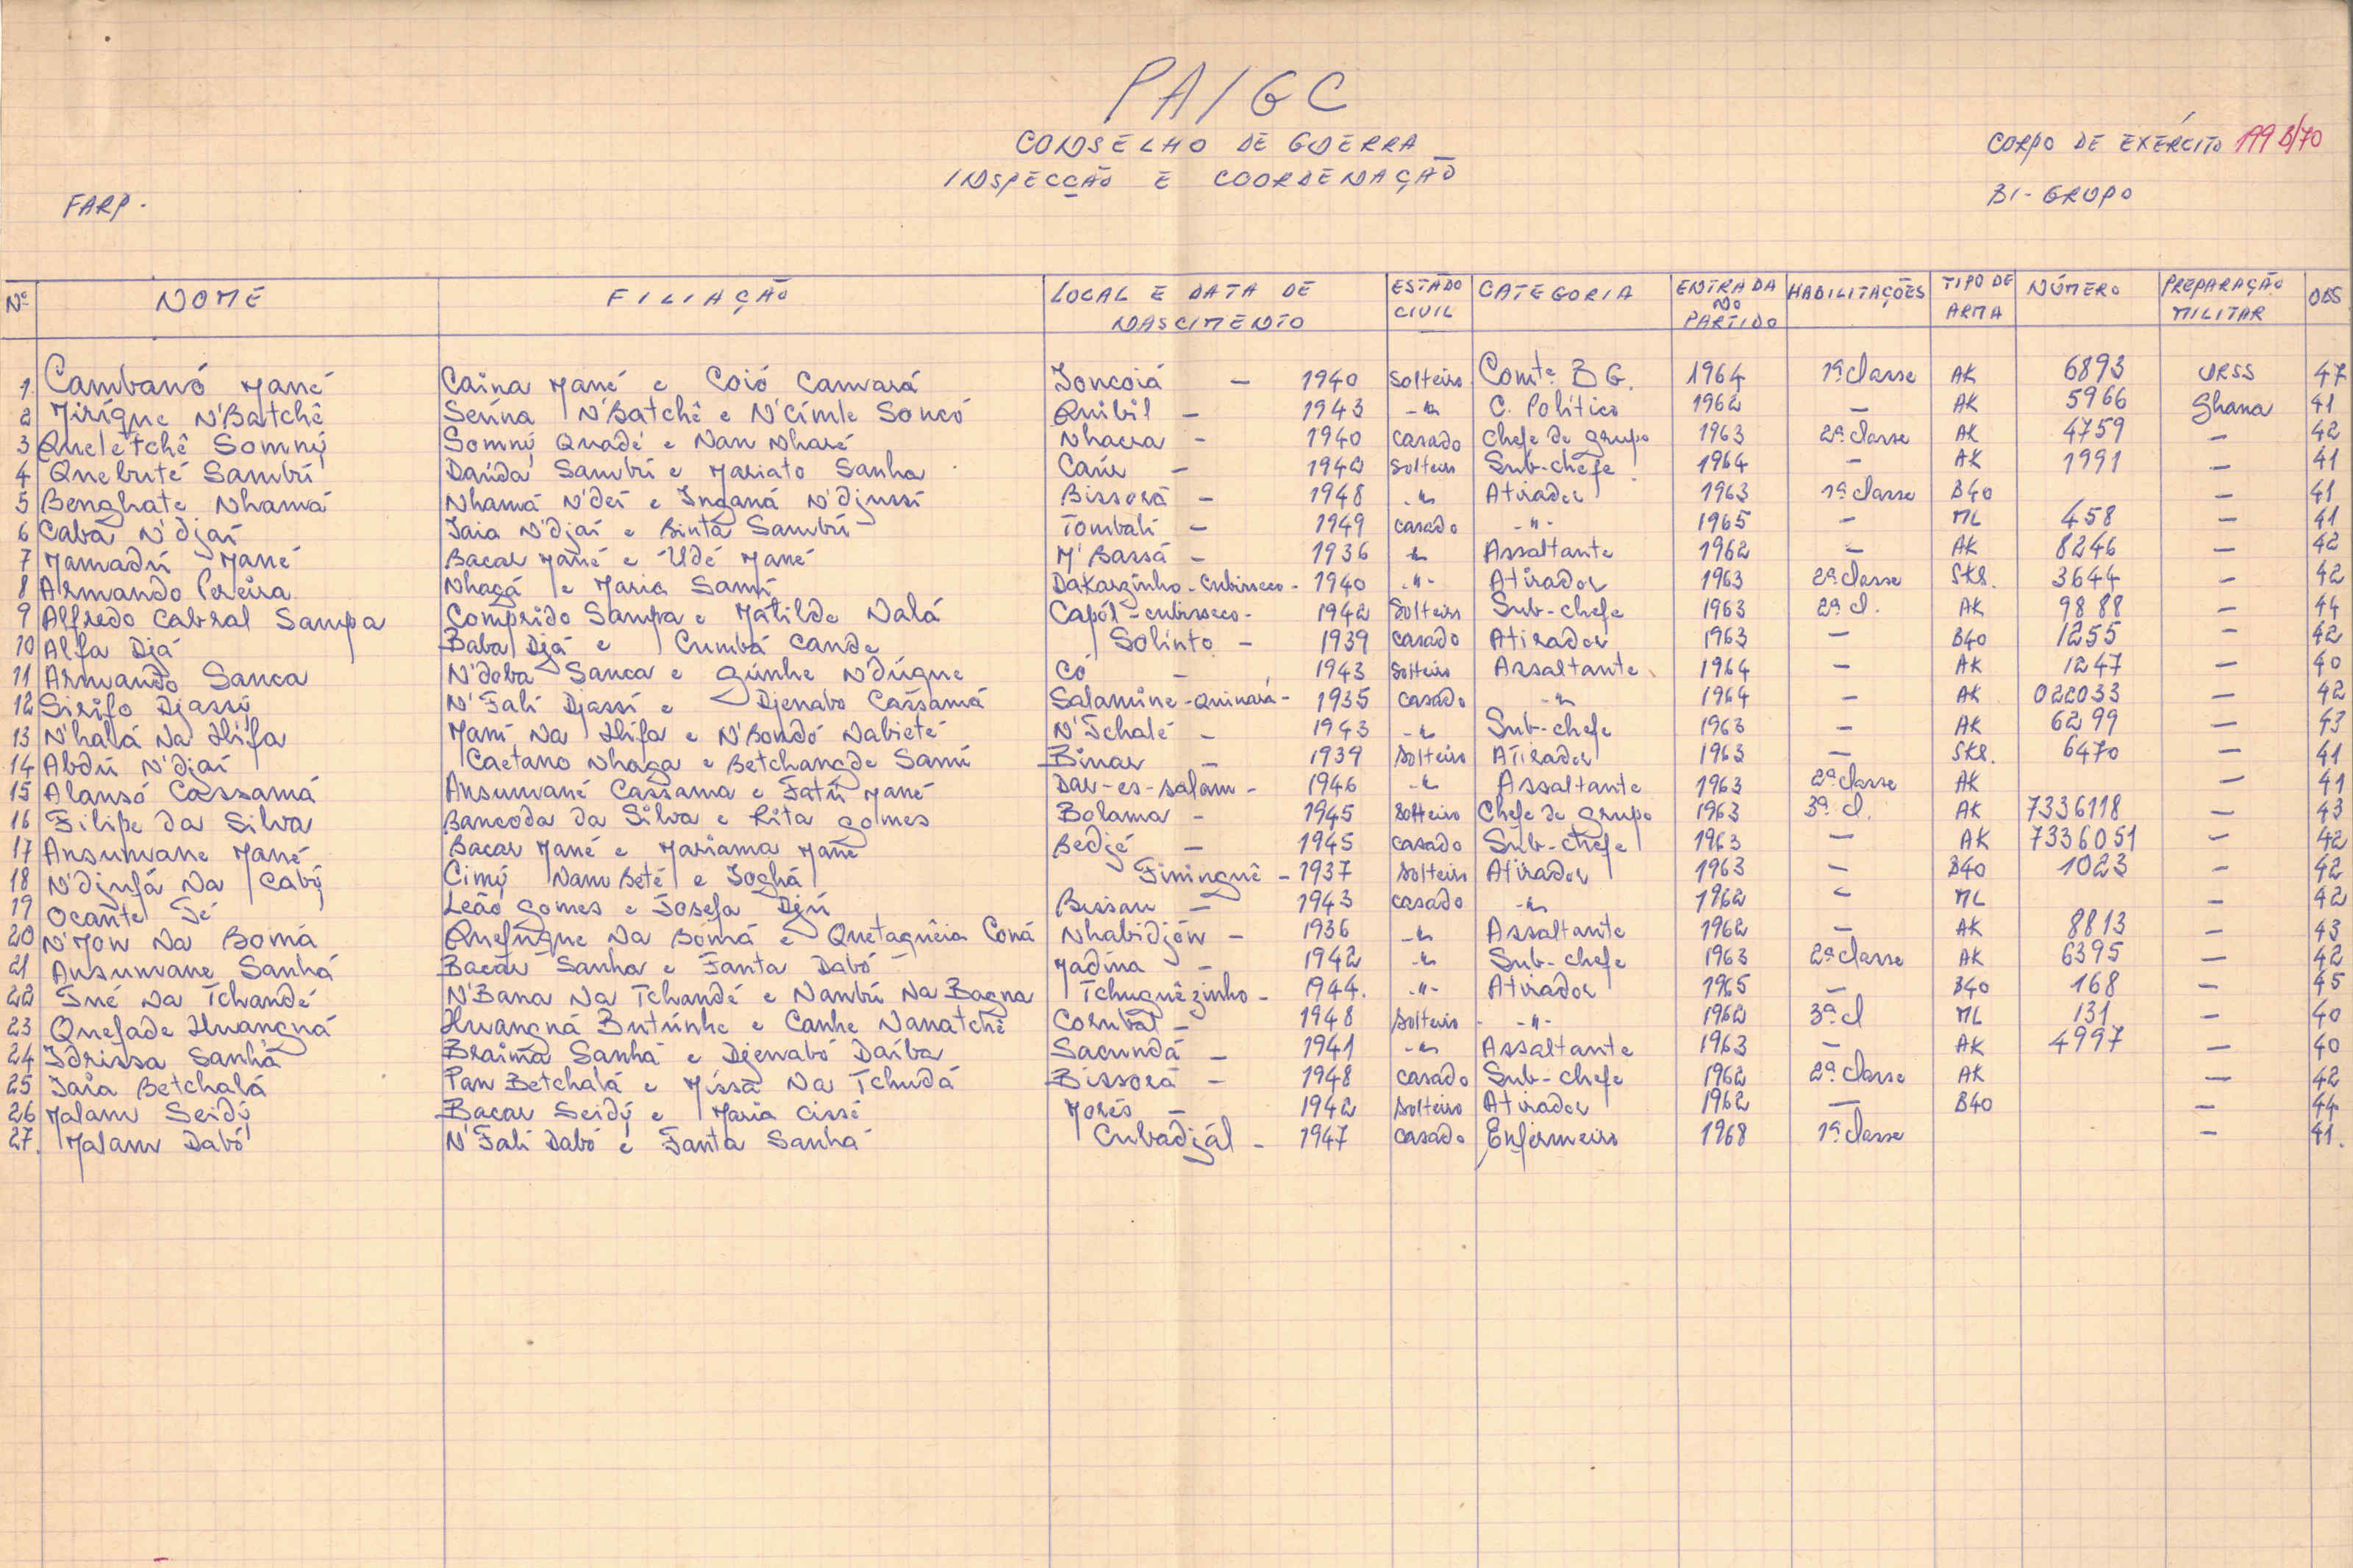 PAIGC
CONSELHO DE GUERRA
INSPECÇÃO E COORDENAÇÃO
CORPO DE EXÉRCITO 199 B/70
BI-GRUPO
FARP.
Nº NOME FILIAÇÃO LOCAL E DATA DE NASCIMENTO ESTADO CIVIL CATEGORIA ENTRADA NO PARTIDO HABILITAÇÕES TIPO DE ARMA NÚMERO PREPARAÇÃO MILITAR OBS
1 Cambanó Mané Caina Mané e Coió Camará Joncoiá - 1940 Solteiro Comte B G. 1964 1ª classe AK 6893 URSS 47
2 Miríque N'Batchê Senna N'Batchê e N'Címle Soncó Quibil - 1943 -"- C. Político 1962 - AK 5966 Ghana 41
3 Queletchê Somný Somný Quadé e Nan Nharé Nhacra - 1940 casado Chefe de grupo 1963 2ª classe AK 4759 - 42
4 Quebuté Sambú Daúda Sambú e Mariato Sanha Caúr - 1942 Solteiro Sub-chefe 1964 - AK 1991 - 41
5 Benghate Nhamá Nhamá N'deí e Inganá N'djussí Bissorã - 1948 -"- Atirador 1963 1ª classe B40 - 41
6 Cabá N'djaí Iaia N'djaí e Binta Sambú Tombalí - 1949 casado -"- 1965 - ML 458 - 41
7 Mamadú Mané Bacar Mané e Údé Mané M'Bassá - 1936 -"- Assaltante 1962 - AK 8246 - 42
8 Armando Pereira Nhagá e Maria Samí Dakarzinho-Cubisseco - 1940 -"- Atirador 1963 2ª classe SKS. 3644 - 42
9 Alfredo Cabral Sampa Comprido Sampa e Matilde Nalá Capól-cubisseco - 1942 Solteiro Sub-chefe 1963 2ª cl. AK 9888 - 44
10 Alfa Djá Baba Djá e Cumbá Cande Solinto - 1939 casado Atirador 1963 - B40 1255 - 42
11 Armando Sanca N'doba Sanca e Gúnhe N'dúgue Có - 1943 Solteiro Assaltante 1964 - AK 1247 - 40
12 Sirifo Djassý N'Falí Djassí e Djenabo Cassamá Salamine-Quinará - 1935 casado -"- 1964 - AK 022033 - 42
13 N'halá Na Hífa Maní Na Hífa e N'Bondó Nabieté N'Tchalé - 1943 -"- Sub-chefe 1963 - AK 6299 - 43
14 Abdú N'djaí Caetano Nhaga e Betchangde Samí Binar - 1939 Solteiro Atirador 1963 - SKS. 6470 - 41
15 Alansó Cassamá Ansumané Cassama e Fatú Mané Dar-es-salam - 1946 -"- Assaltante 1963 2ª classe AK - 41
16 Filipe da Silva Bancoda da Silva e Rita Gomes Bolama - 1945 Solteiro Chefe de grupo 1963 3ª cl. AK 7336118 - 43
17 Ansumane Mané Bacar Mané e Mariama Mané Bedjé - 1945 casado Sub-chefe 1963 - AK 7336051 - 42
18 N'djufá Na Cabý Cimý Nam Beté e Joghá Finingué - 1937 Solteiro Atirador 1963 - B40 1023 - 42
19 Ocante Té Leão Gomes e Josefa Djú Bissau - 1943 casado -"- 1962 - ML - 42
20 N'Mon Na Bomá Quefugue Na Bomá e Quetaguêia Coná Nhabidjón - 1936 -"- Assaltante 1962 - AK 8813 - 43
21 Ansumane Sanhá Bacár Sanha e Fanta Dabó Madína - 1942 -"- Sub-chefe 1963 2ª classe AK 6395 - 42
22 Iné Na Tchandé N'Bana Na Tchandé e Nambú Na Bagna Tchuguêzinho - 1944. -"- Atirador 1965 - B40 168 - 45
23 Quefade Huangná Huangná Butúnhe e Canhe Nanatchê Corubal - 1948 Solteiro -"- 1962 3ª cl ML 131 - 40
24 Idrissa Sanhá Braima Sanhá e Djenabó Daíba Sacundá - 1941 -"- Assaltante 1963 - AK 4997 - 40
25 Iaia Betchalá Pan Betchalá e Missá Na Tchudá Bissorã - 1948 casado Sub-chefe 1962 2ª classe AK - 42
26 Malam Seidý Bacar Seidý e Maria Cissé Morés - 1942 Solteiro Atirador 1962 - B40 - 44
27. Malam Dabó N'Falí Dabó e Fanta Sanhá Cubadjál - 1947 casado Enfermeiro 1968 1ª classe - 41.